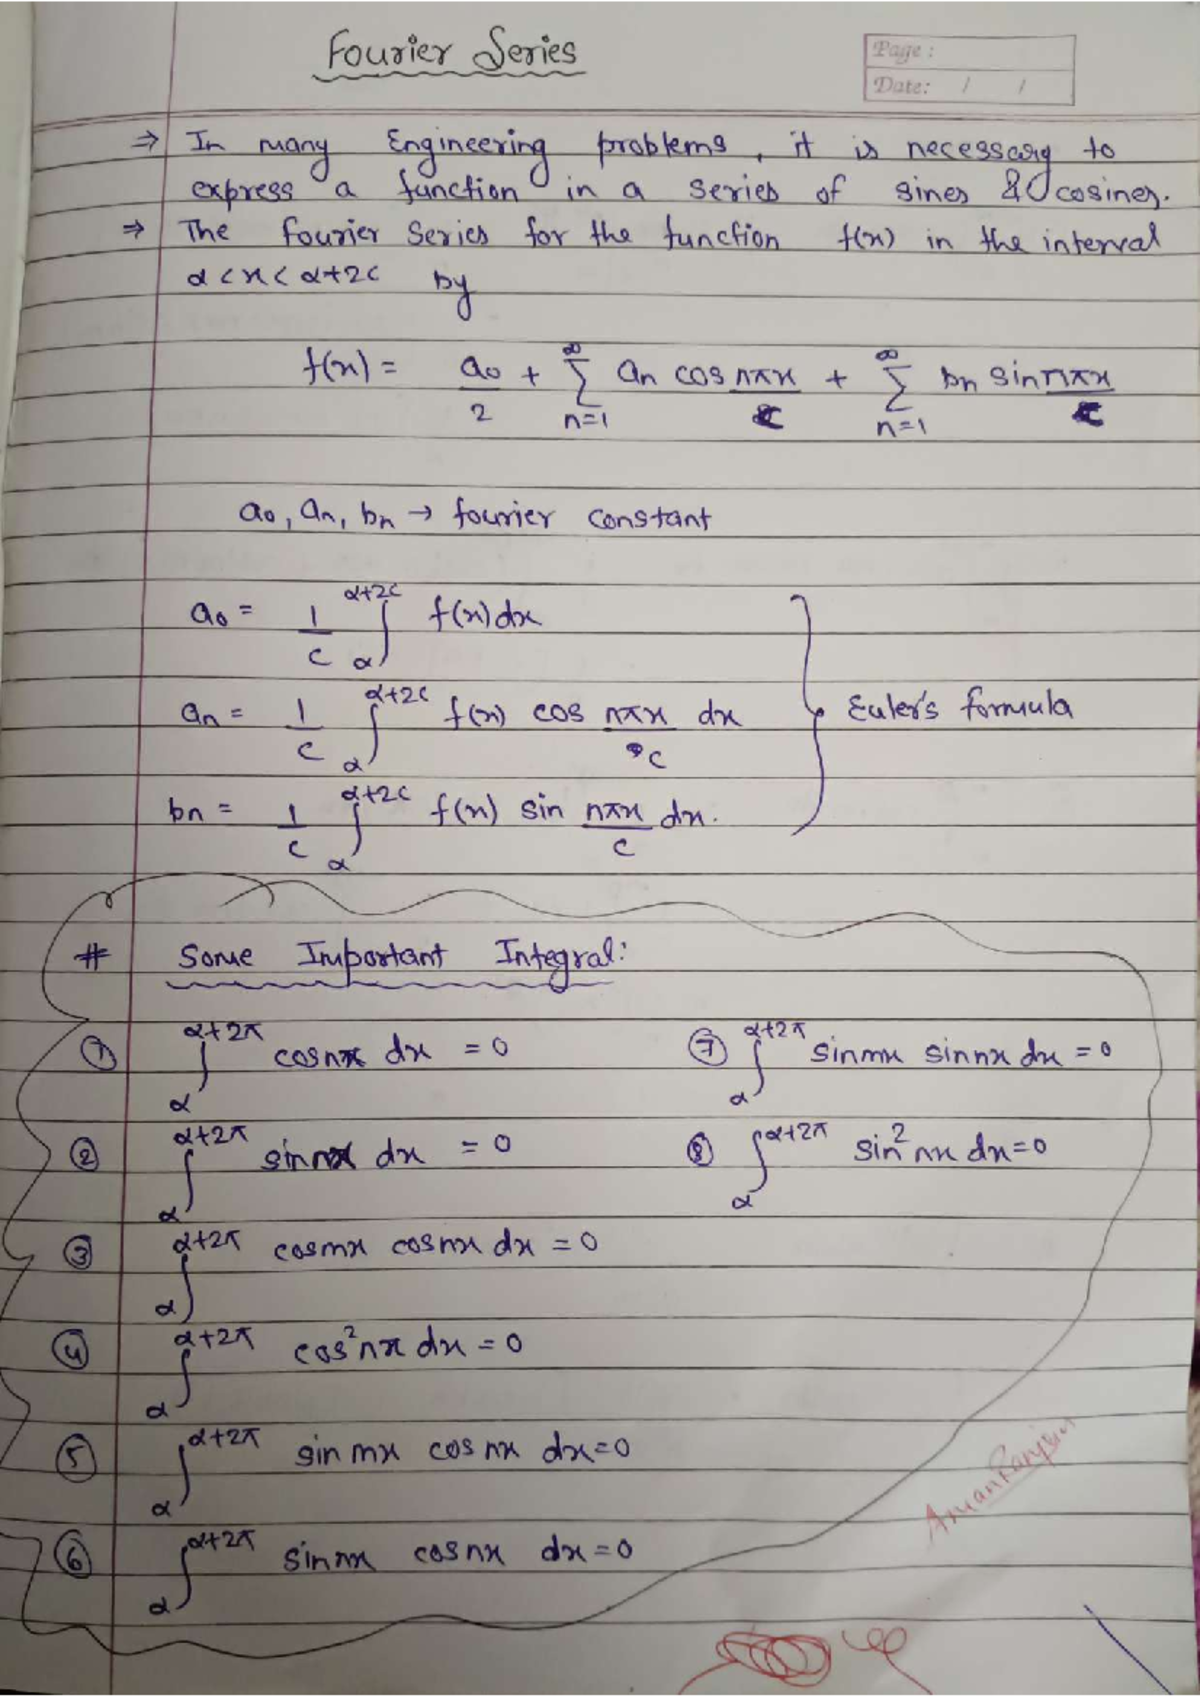 Fourier Series
Page :
Date: / /
⇒ In many Engineering problems, it is necessary to
express a function in a series of sines & cosines.
⇒ The fourier Series for the function f(x) in the interval
α<x<α+2c by
f(x) = a0/2 + ∞∑n=1 an cos nπx/c + ∞∑n=1 bn sin nπx/c
a0, an, bn → fourier constant
a0 = 1/c ∫α^α+2c f(x)dx
an = 1/c ∫α^α+2c f(x) cos nπx/c dx
Euler's formula
bn = 1/c ∫α^α+2c f(x) sin nπx/c dx.
# Some Important Integral:
① ∫α^α+2π cosnx dx = 0
⑦ ∫α^α+2π sinmx sinnx dx = 0
② ∫α^α+2π sinnx dx = 0
⑧ ∫α^α+2π sin²nx dx=0
③ ∫α^α+2π cosmx cosnx dx = 0
④ ∫α^α+2π cos²nx dx = 0
⑤ ∫α^α+2π sin mx cos nx dx=0
⑥ ∫α^α+2π sinnx cosnx dx=0
AmanRanjan